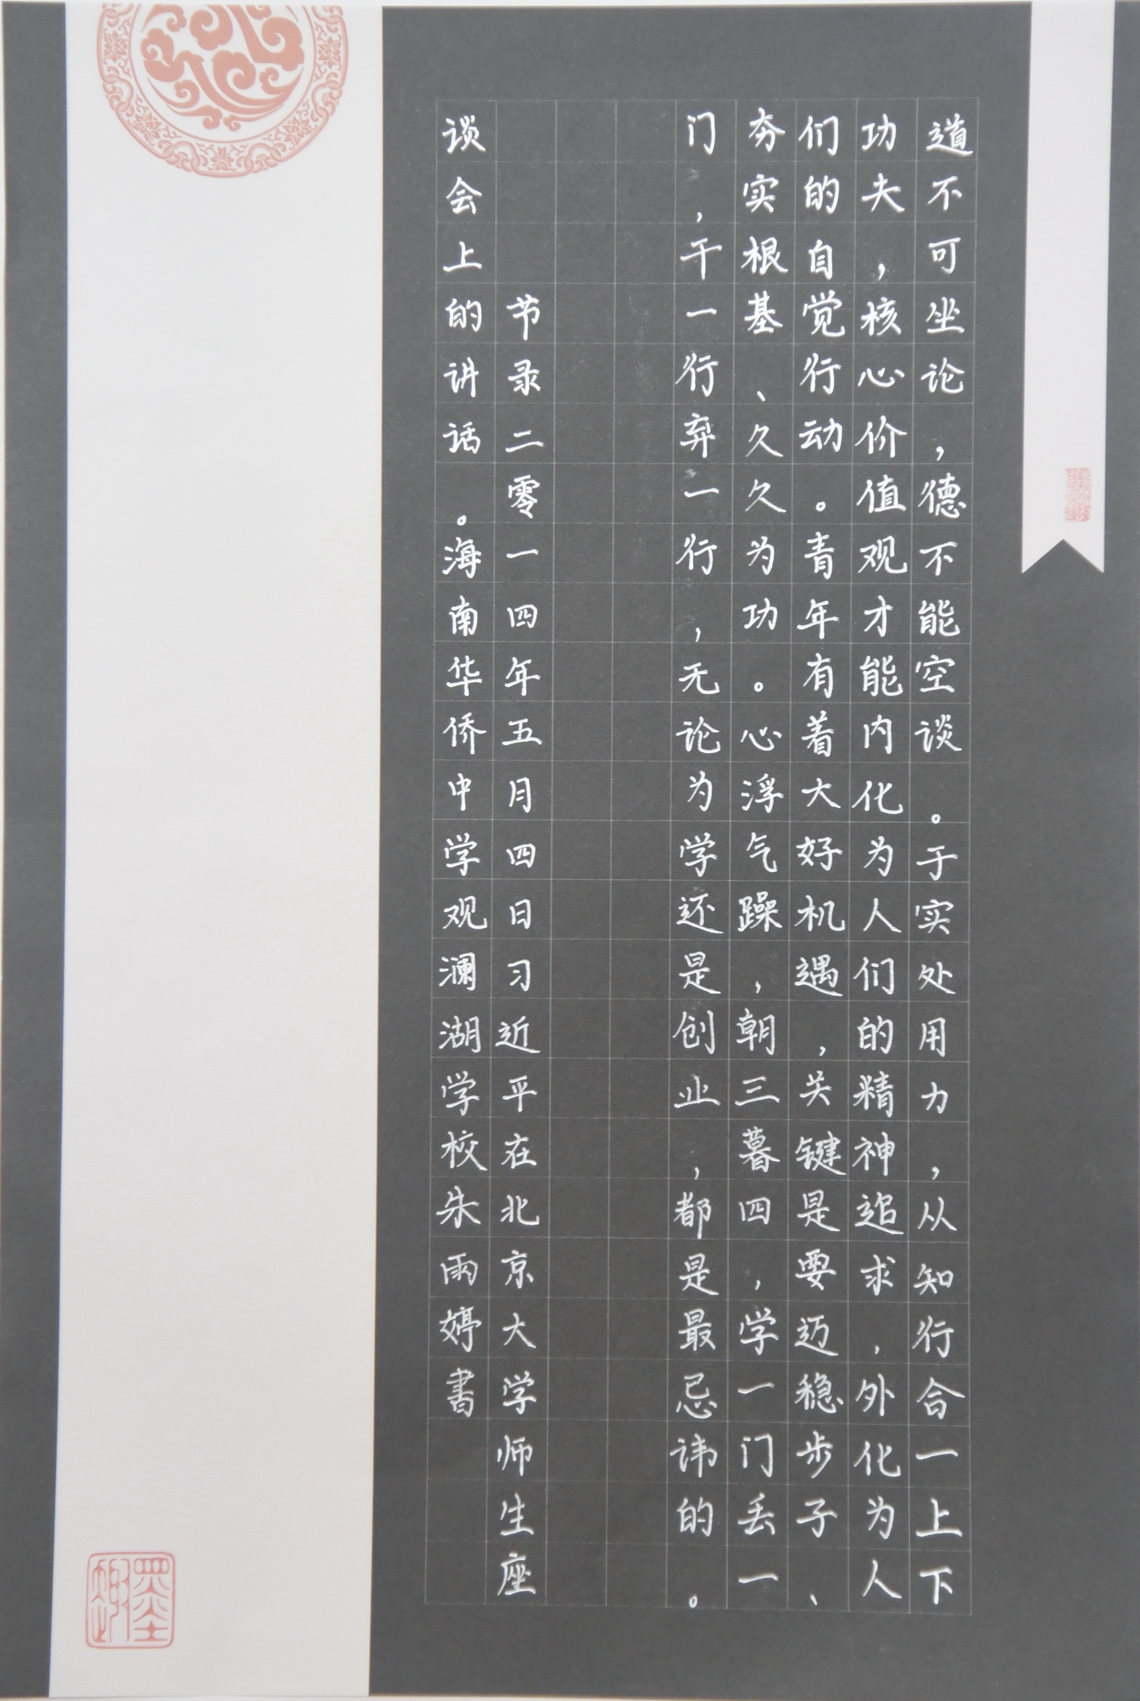 道不可坐论，德不能空谈。于实处用力，从知行合一上下
功夫，核心价值观才能内化为人们的精神追求，外化为人
们的自觉行动。青年有着大好机遇，关键是要迈稳步子、
夯实根基、久久为功。心浮气躁，朝三暮四，学一门丢一
门，干一行弃一行，无论为学还是创业，都是最忌讳的。
节录二零一四年五月四日习近平在北京大学师生座
谈会上的讲话。海南华侨中学观澜湖学校朱雨婷書